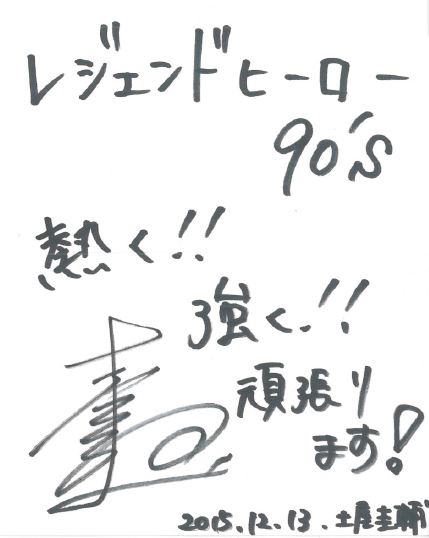 レジェンドヒーロー
90's
熱く!!
強く!!
頑張り
ます!
2015.12.13. 土屋圭輔